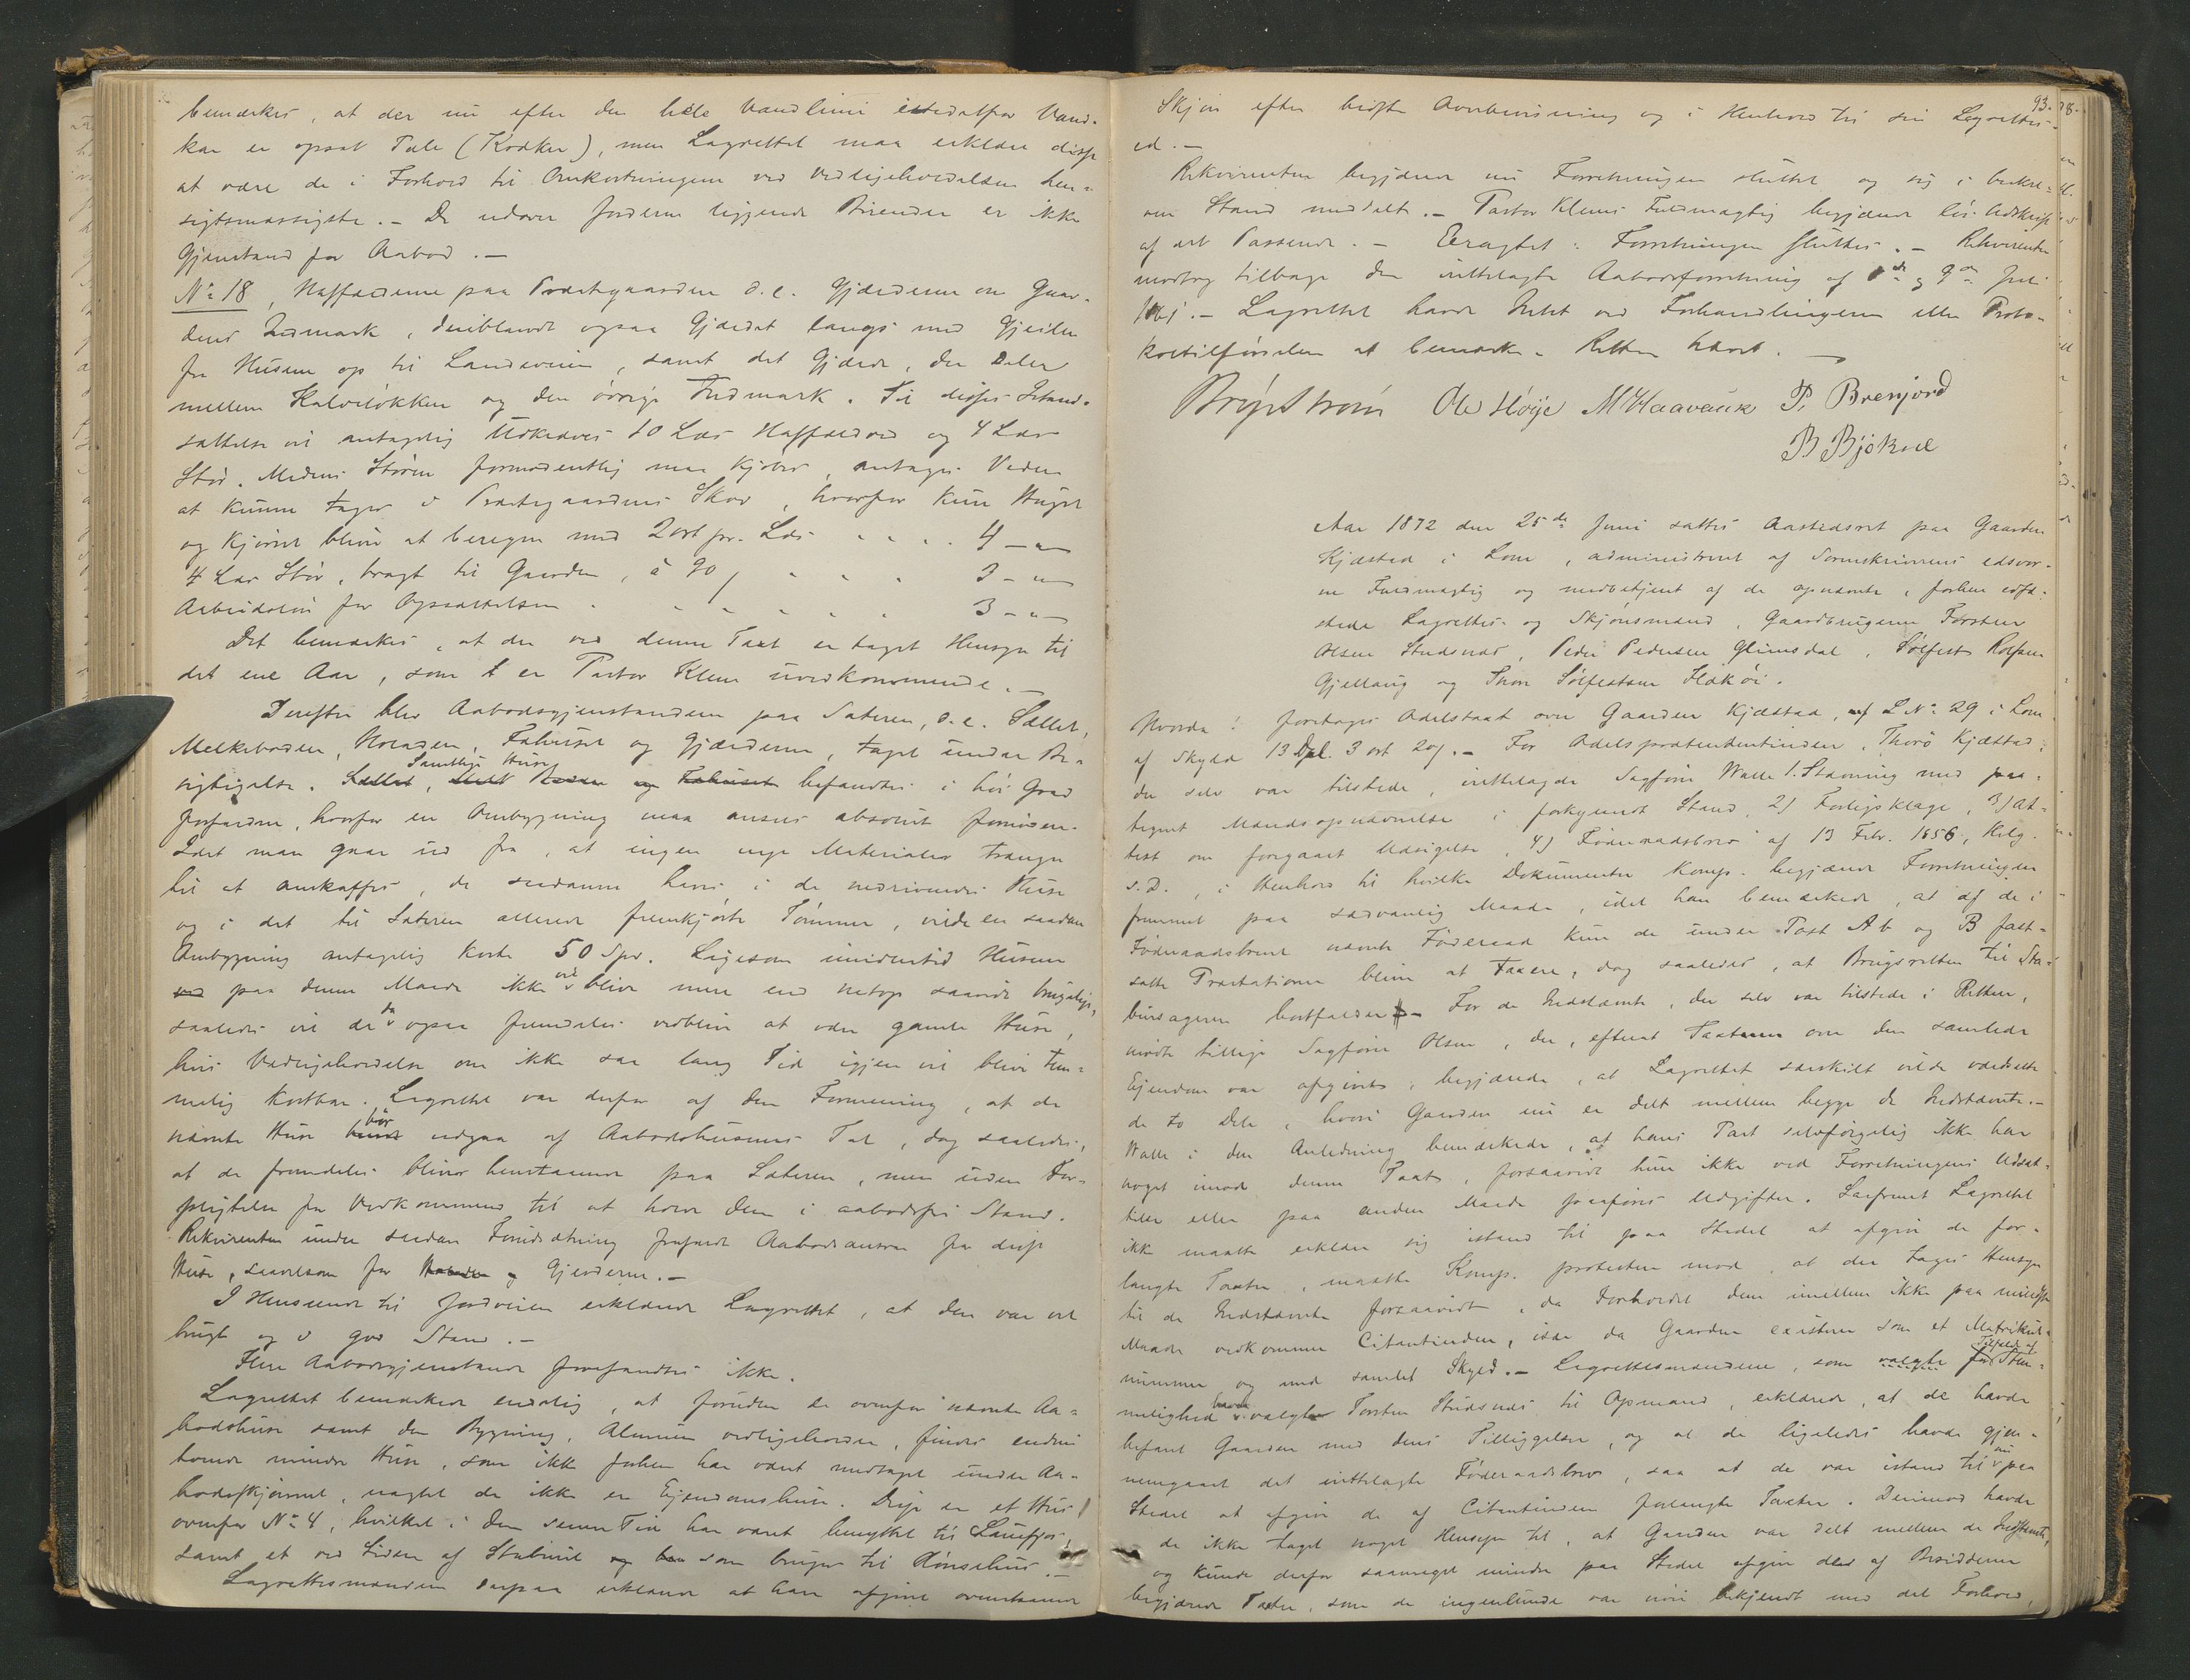 bemærkes, at der nu efter den hele Vandlinie istedetfor Vand-
kar er opsat Pæle (Krakker), men Lagrettet maa erklære disse
at være de i Forhold til Omkostningerne ved Vedligeholdelsen hen-
sigtsmæssigste. - De udover Jorderne liggende Render er ikke
Gjenstand for Aabod. -
No 18, Haffælderne paa Præstegaarden d. e. Gjærderne om Gaar-
dens Indmark, deriblandt ogsaa Gjærdet langs med Gjeilen
fra Husene op til Landeveien, samt det Gjærde, der deler
mellem Kalveløkken og den øvrige Indmark. Til disses Istand-
sættelse vil antagelig Udkræves 10 Læs Haffældved og 4 Læs
Stør. Medens Støren formodentlig maa kjøbes, antages Veden
at kunne tages i Præstegaardens Skov, hvorfor kun Hugst
og Kjørsel bliver at beregne med 2 ort pr. Læs - - - - 4 - " -
4 Læs Stør, bragt til Gaarden, à 90 ß - - - 3 - " -
Arbeidsløn for Opsættelsen - - - - - - 3 - " -
Det bemærkes, at der ved denne Taxt er taget Hensyn til
det ene Aar, som er Pastor Klem uvedkommende. -
Derefter blev Aabodsgjenstandene paa Sæteren, d. e. Sællet,
Melkeboden, Høladen, Fæhuset og Gjærderne, taget under Be-
Samtlige Huse
sigtigelse. Sællet, og Fæhuset befandtes i høi Grad
forfaldne, hvorfor en Ombygning maa ansees absolut fornøden.
Idet man gaar ud fra, at ingen nye Materialer trænges
til at anskaffes, da saadanne haves i de nedrivendes Huse
og i det til Sæteren allerede fremkjørte Tømmer, vilde en saadan
Ombygning antagelig koste 50 Spd. Ligesom imidlertid Husene
paa denne Maade ikke vil blive mere end netop saavidt brugelige,
saaledes vil de da ogsaa fremdeles vedblive at være gamle Huse,
hvis Vedligeholdelse om ikke saa lang Tid igjen vil blive tem-
melig kostbar. Lagrettet var derfor af den Formening, at de
nævnte Huse bør udgaa af Aabodshusenes Tal, dog saaledes,
at de fremdeles bliver henstaaende paa Sæteren, men uden For-
pligtelse for Vedkommende til at holde dem i aabodsfri Stand.
Rekvirenten under saadan Forudsætning frafaldt Aabodsansvar for disse
Huse, saavelsom for Høladen og Gjærderne. -
I Henseende til Jordveien erklærede Lagrettet, at den var vel
brugt og i god Stand. -
Flere Aabodsgjenstande forefandtes ikke.
Lagrettet bemærkede endelig, at foruden de ovenfor nævnte Aa-
bodshuse samt den Bygning, Almuen vedligeholder, findes endnu
tvende mindre Huse, som ikke forhen har været medtaget under Aa-
bodsskjønnet, uagtet de ikke er Ejendomshuse. Disse er et Hus
ovenfor No 4, hvilket i den senere Tid har været benyttet til Sauefjøs,
samt et ved Siden af Staburet som bruges til Hønsehus. -
Lagrettesmændene derpaa erklærede at have afgivet ovenstaaende
93.
Skjøn efter bedste Overbevisning og i Henhold til sin Lagrettes-
ed. -
Rekvirenten begjærede nu Forretningen sluttet og sig i beskre-
ven Stand meddelt. - Pastor Klems Fuldmægtig begjærede lign. Udskrift
af det Passerede. - Eragtet: Forretningen sluttes. - Rekvirenten
modtog tilbage den irettelagte Aabodsforretning af 8de og 9de Juli
1861. - Lagrettet havde Intet ved Forhandlingerne eller Proto-
koltilførselen at bemærke. Retten hævet. -
Brynstrøm Ole Høije M Haavaik P. Brenjord
B Bjøkne
Aar 1872 den 25de Juni sattes Aastedsret paa Gaarden
Kjæstad i Lom, administreret af Sorenskriverens edsvor-
ne Fuldmægtig og medbetjent af de opnævnte, forhen edfæ-
stede Lagrettes- og Skjønsmænd, Gaardbrugerne Torsten
Olsen Studsnæs, Peder Pedersen Glimsdal, Sølfest Rolfsen
Gjellaug og Thor Sølfestsen Flækøi.
Hvorda! foretages Odelstaxt over Gaarden Kjæstad, L No 29 i Lom
af Skyld 13 Dal. 3 ort 20 ß. - For Odelsprætendentinden, Thorø Kjæstad,
der selv var tilstede, irettelagde Sagfører Walle 1. Stævning med paa-
tegnet Mandsopnævnelse i forkyndt Stand, 2) Forligsklage, 3) At-
test om foregaaet Udsigelse, 4) Føderaadsbrev af 13 Febr. 1856, thlg.
s. D., i Henhold til hvilke Dokumenter Komp. begjærede Forretningen
fremmet paa sædvanlig Maade, idet han bemærkede, at af de i
Føderaadsbrevet nævnte Føderaad kun de under Post A b og B fast-
satte Præstationer bliver at taxere, dog saaledes, at Brugsretten til Sta-
bursageren bortfalder - For de Indstævnte, der selv var tilstede i Retten,
mødte tillige Sagfører Olsen, der, efterat Taxten over den samlede
Ejendom var afgivet, begjærede, at Lagrettet særskilt vilde værdsætte
de to Dele, hvori Gaarden nu er delt mellem begge de Indstævnte. -
Walle i den Anledning bemærkede, at hans Part selvfølgelig ikke har
noget imod denne Taxt, forsaavidt hun ikke ved Forretningens Udsæt-
telse eller paa anden Maade paaføres Udgifter. Saafremt Lagrettet
ikke maatte erklære sig istand til paa Stedet at afgive de for-
langte Taxter, maatte Komp. protestere mod, at der tages Hensyn
til de Indstævnte forsaavidt, da Forholdet dem imellem ikke paa mindste
Maade vedkommer Citantinden, især da Gaarden existerer som et Matrikul-
nummer og med samlet Skyld. - Lagrettesmændene, som valgte for Tilfælde af Stem-
melighed havde valgt Torsten Studsnæs til Opmand, erklærede, at de havde
befaret Gaarden med dens Tilliggelser, og at de ligeledes havde gjen-
nemgaaet det irettelagte Føderaadsbrev, saa at de var istand til nu paa
Stedet at afgive de af Citantinden forlangte Taxter. Derimod havde
de ikke taget noget Hensyn til, at Gaarden var delt mellem de Indstævnte,
og kunde derfor saameget mindre paa Stedet afgive den af Besidderne
begjærede Taxter, som de ingenlunde var nøie bekjendt med det Forhold,